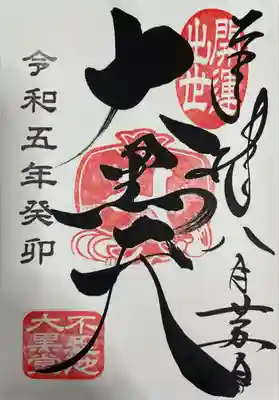 開運
出世
奉拝
八月
大黒天
令和五年癸卯
不忍池
大黒堂